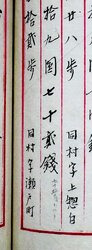 廿八歩 同村字上惣白
拾九圓七十貳錢
拾貳歩 同村字瀬戸町